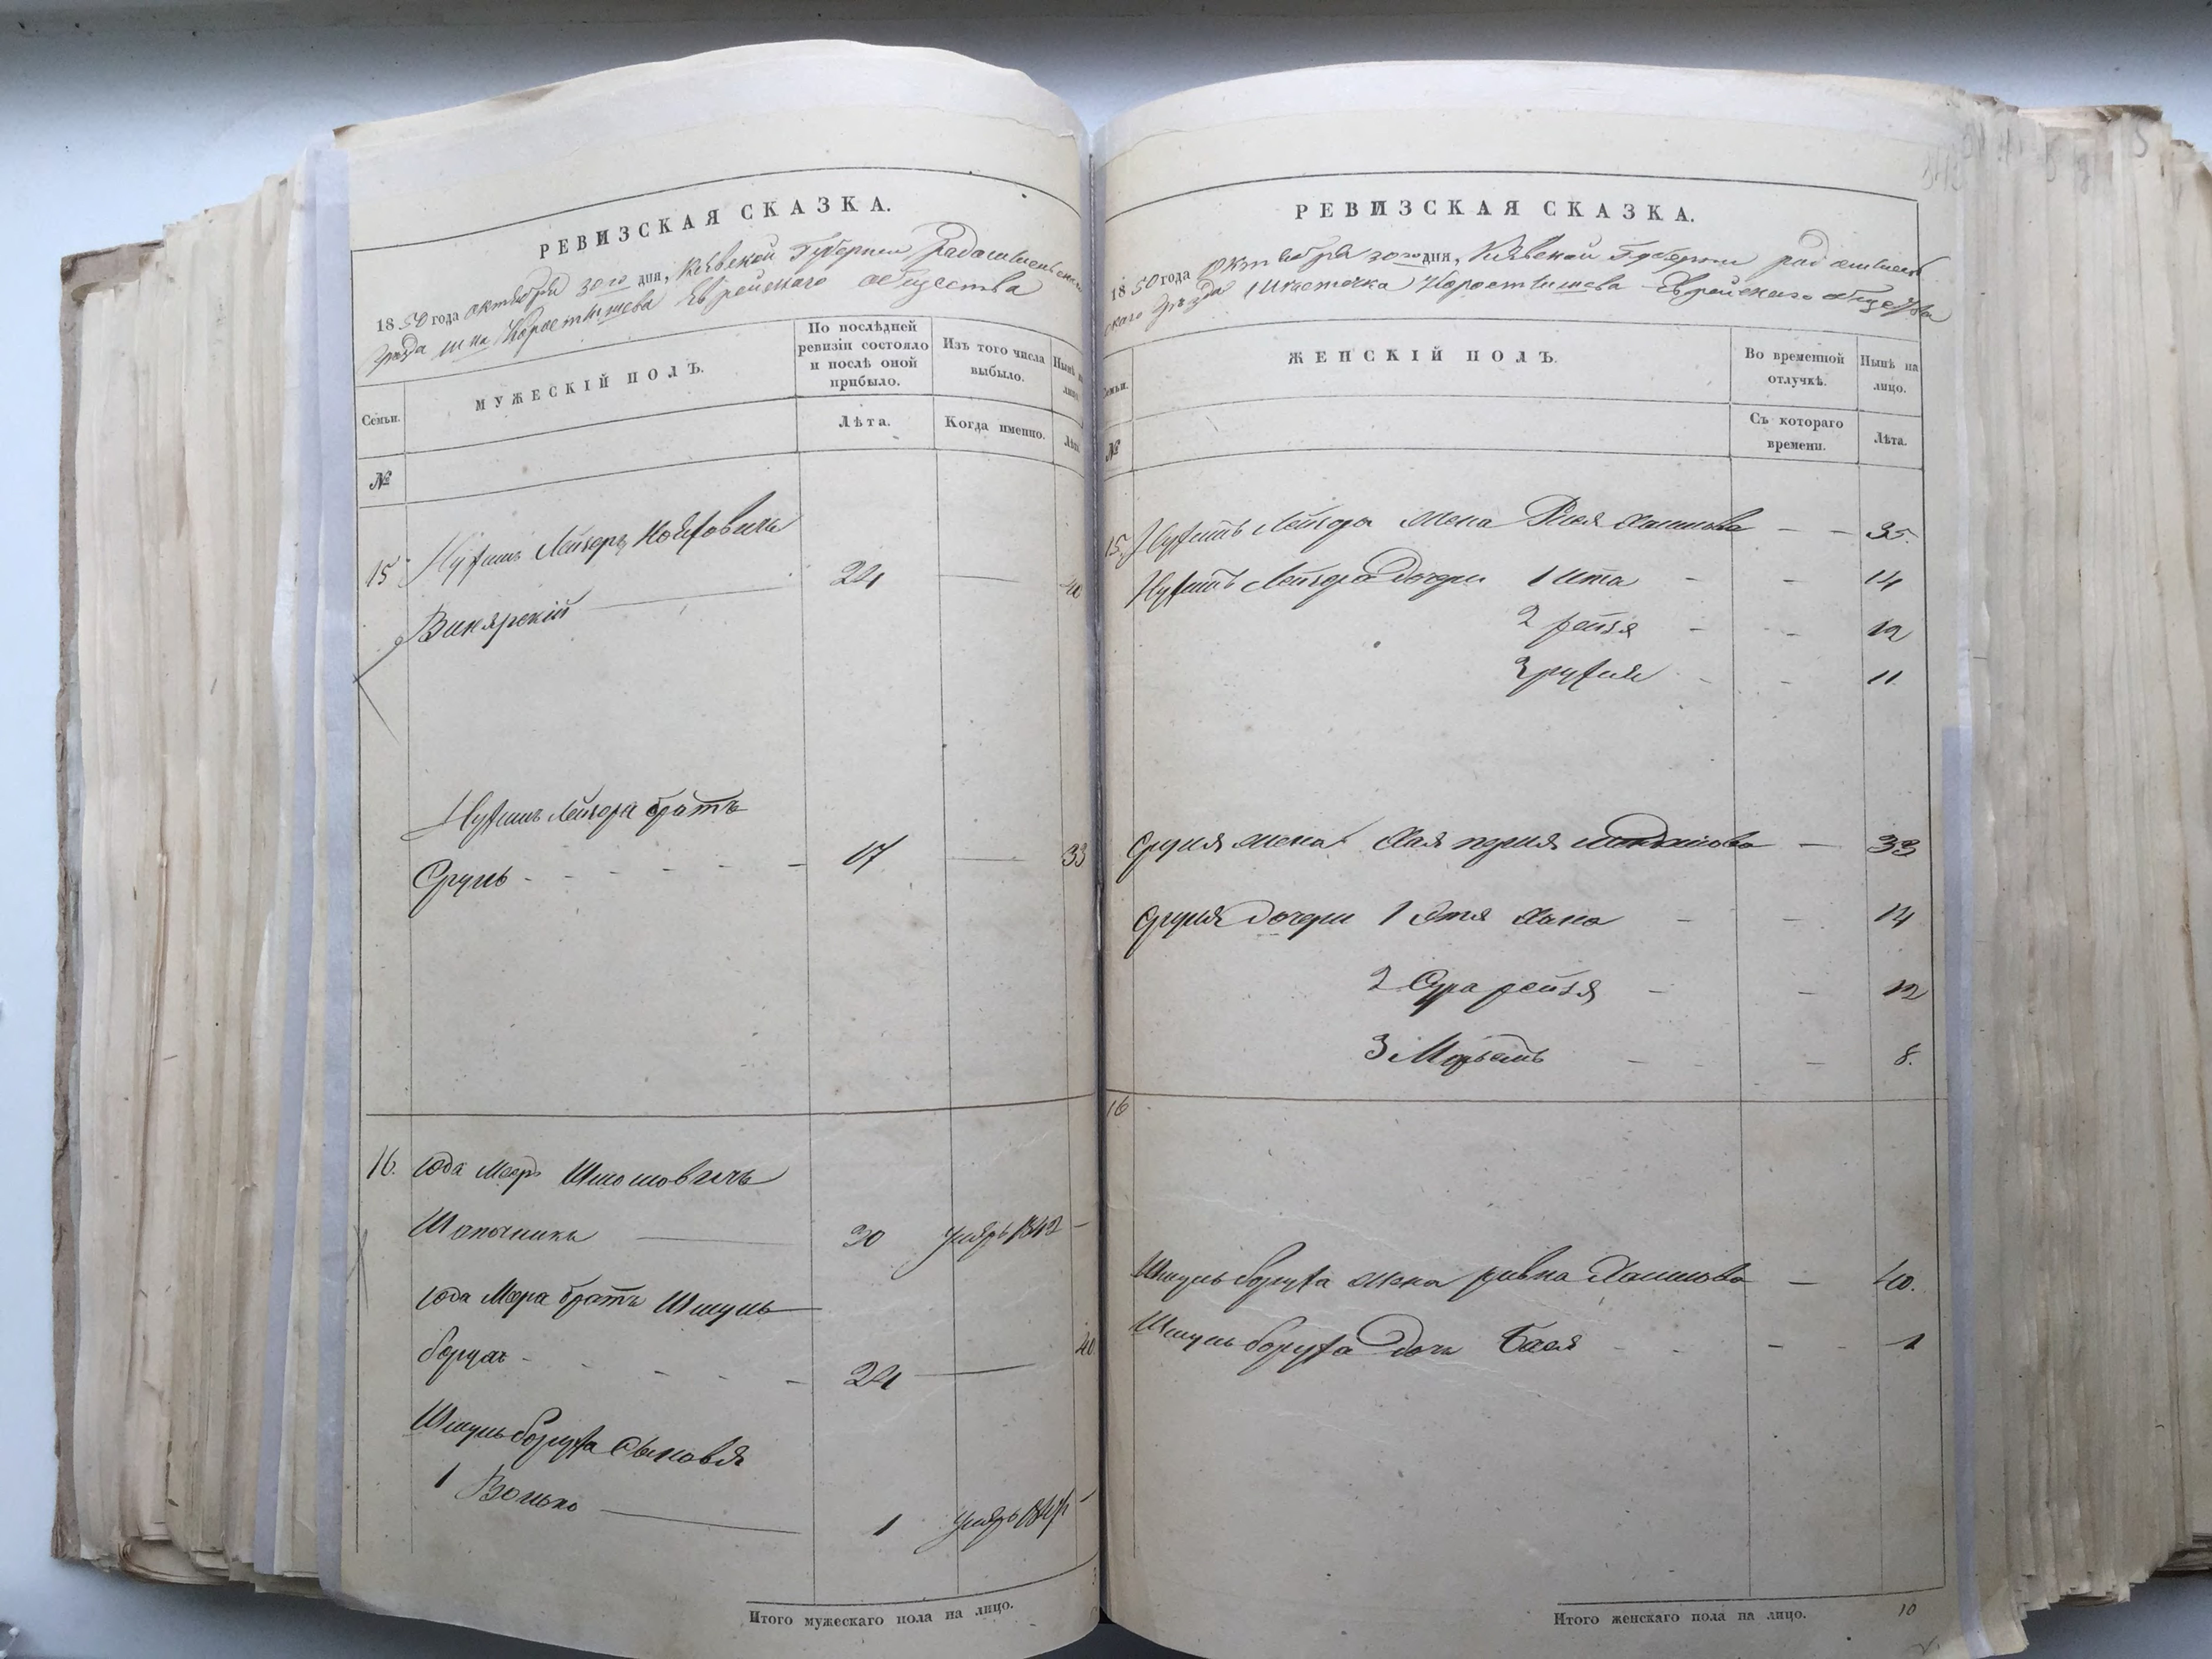 РЕВИЗСКАЯ СКАЗКА.
1850 года октября 30го дня, Кіевской Губерніи Радомысльскаго
уезда м-ка Коростышева Еврейскаго общества
Семьи.
МУЖЕСКІЙ ПОЛЪ.
По послѣдней ревизіи состояло и послѣ оной прибыло.
Изъ того числа выбыло.
Нынѣ на лицо
Лѣта.
Когда именно.
Лѣта
№
15 Нухимъ Лейзоръ
Винярскій 24 — 40
Нухимъ Лейзора братъ
Сруль 17 — 33
16. Іода Мееръ
30 умеръ 1842 —
Іода Меера братъ Шмуль
Борухъ 24 — 40
Шмуль Боруха сыновья
1 Волько 1 умеръ —
Итого мужескаго пола на лицо.
РЕВИЗСКАЯ СКАЗКА.
1850 года Октября 30го дня, Кіевской Губерніи Радомысль
скаго уезда мѣстечка Коростышева Еврейскаго общества
Семьи.
ЖЕНСКІЙ ПОЛЪ.
Во временной отлучкѣ.
Нынѣ на лицо.
№
Съ котораго времени.
Лѣта.
15. Нухимъ Лейзора жена Хаимова — — 35.
Нухимъ Лейзора дочери 1 Ита - - 14
2 рейзя - - 12
3 рухля - - 11
Сруля жена Хая — 33
Сруля дочери 1 Хана - - 14
2 Сура рейзя - - 12
3 Марьемъ - - 8.
16
Шмуль Боруха жена ривка Хаимова — 40.
Шмуль Боруха дочь Бася - - 1
Итого женскаго пола на лицо. 10